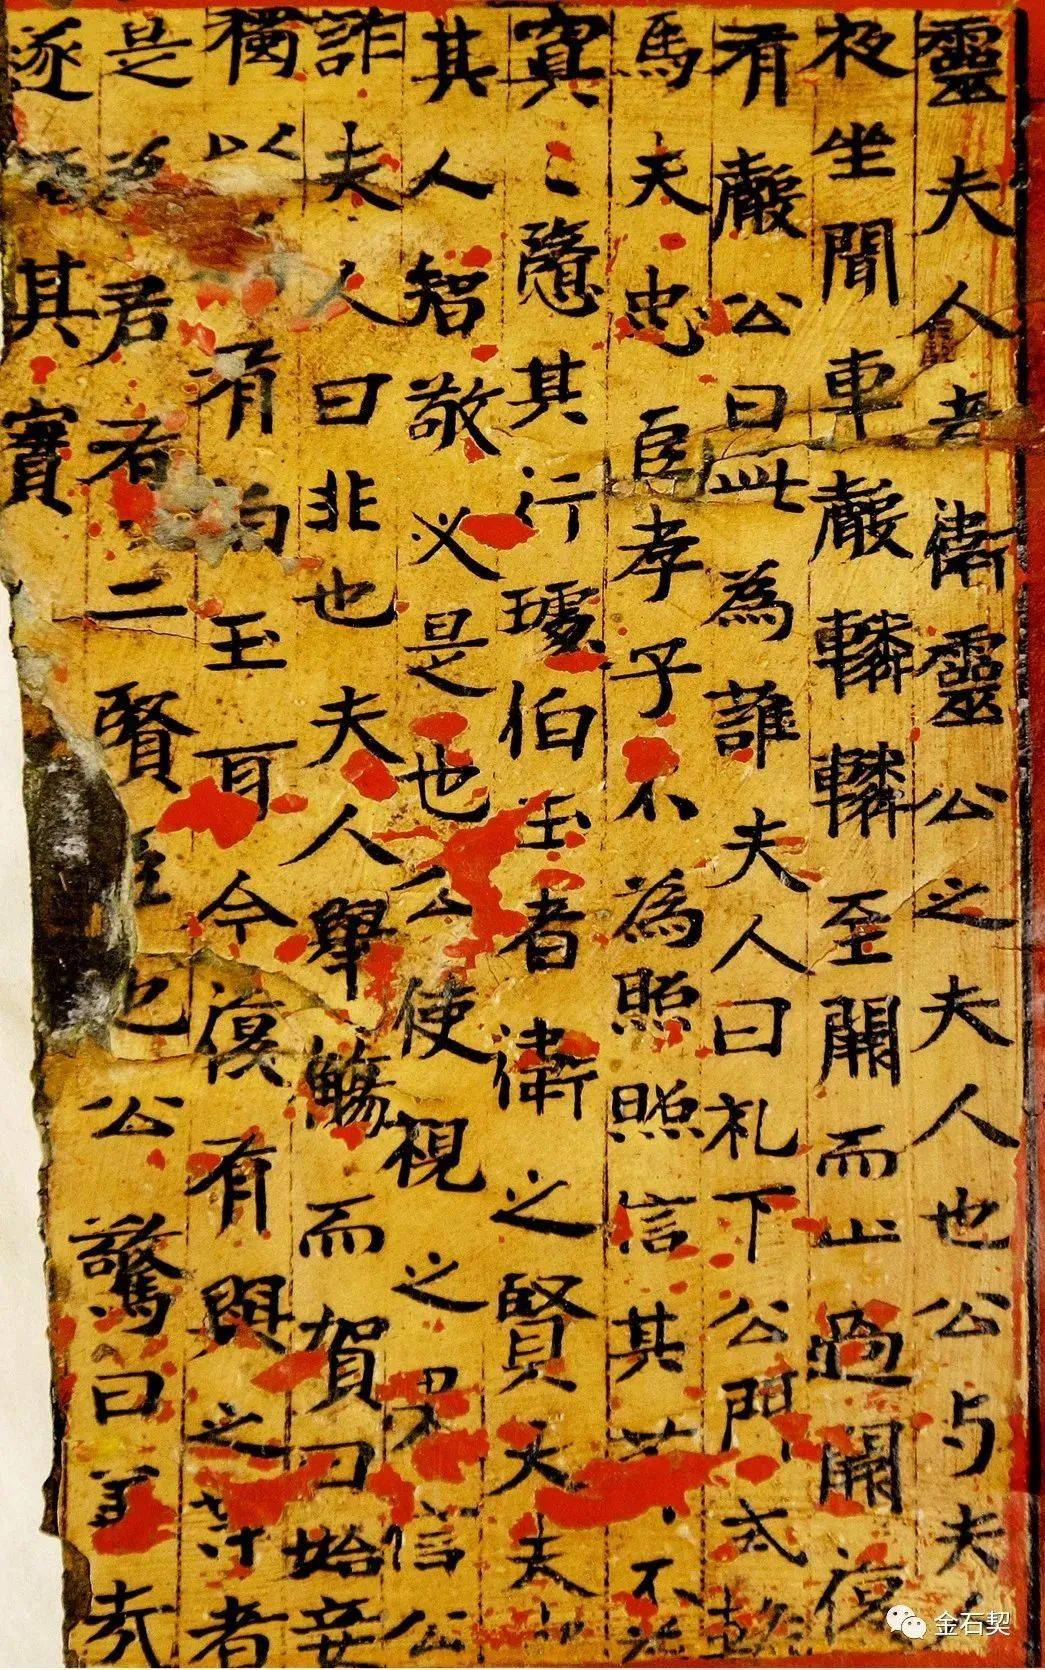 靈夫人者衛靈公之夫人也公与夫人
夜坐聞車聲轔轔至闕而止過闕復
有聲公曰此為誰夫人曰礼下公門式
馬夫忠臣孝子不為照照信其不
寞〻隨其行璩伯玉者衛之賢大夫
其人智敬必是也公使視之信公
詐夫人曰非也夫人舉觴而賀曰始妾
獨以有伯玉耳今復有與之者
是君者二賢臣也公驚曰善哉
遂其實
金石契